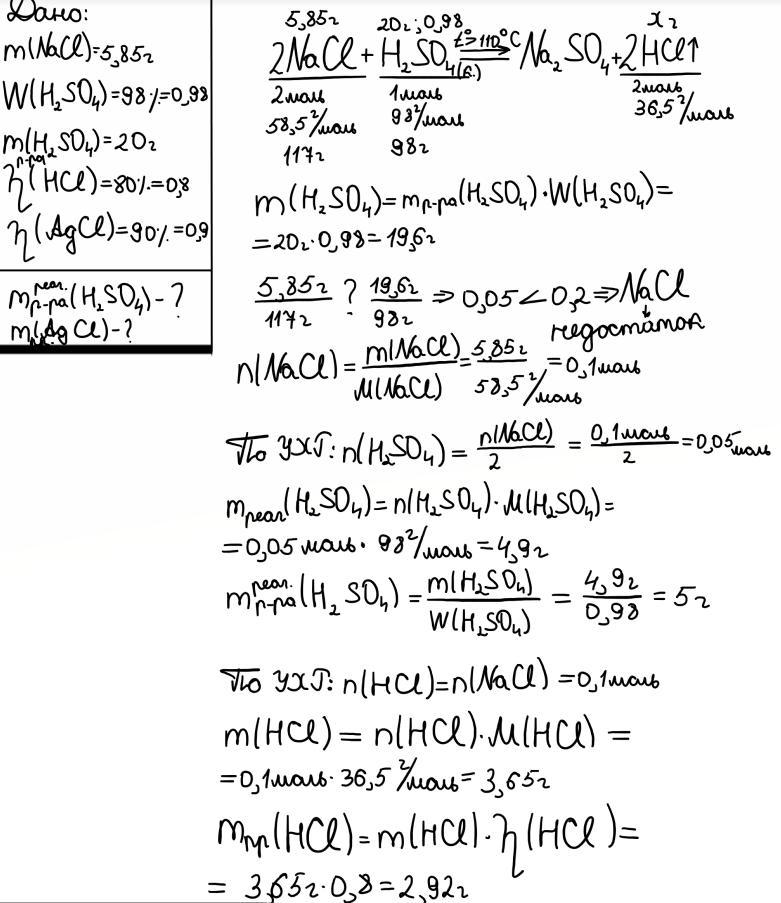 Дано:
m(NaCl)=5,85г
W(H₂SO₄)=98%=0,98
m(H₂SO₄)=20г
р-ра
η(HCl)=80%=0,8
η(AgCl)=90%=0,9
mр-рареаг.(H₂SO₄)-?
m(AgCl)-?
5,85г 20г; 0,98 x г
2NaCl + H₂SO₄(к.) t°>110°C ⇒ Na₂SO₄+2HCl↑
2моль 1моль 2моль
58,5г/моль 98г/моль 36,5г/моль
117г 98г
m(H₂SO₄)=mр-ра(H₂SO₄)·W(H₂SO₄)=
=20г·0,98=19,6г
5,85г/117г ? 19,6г/98г ⇒ 0,05<0,2⇒NaCl
↓
недостаток
n(NaCl)=m(NaCl)/M(NaCl)=5,85г/58,5г/моль=0,1моль
По УХР: n(H₂SO₄)=n(NaCl)/2=0,1моль/2=0,05моль
mреаг(H₂SO₄)=n(H₂SO₄)·M(H₂SO₄)=
=0,05моль·98г/моль=4,9г
mр-рареаг.(H₂SO₄)=m(H₂SO₄)/W(H₂SO₄)=4,9г/0,98=5г
По УХР: n(HCl)=n(NaCl)=0,1моль
m(HCl)=n(HCl)·M(HCl)=
=0,1моль·36,5г/моль=3,65г
mпр(HCl)=m(HCl)·η(HCl)=
= 3,65г·0,8=2,92г